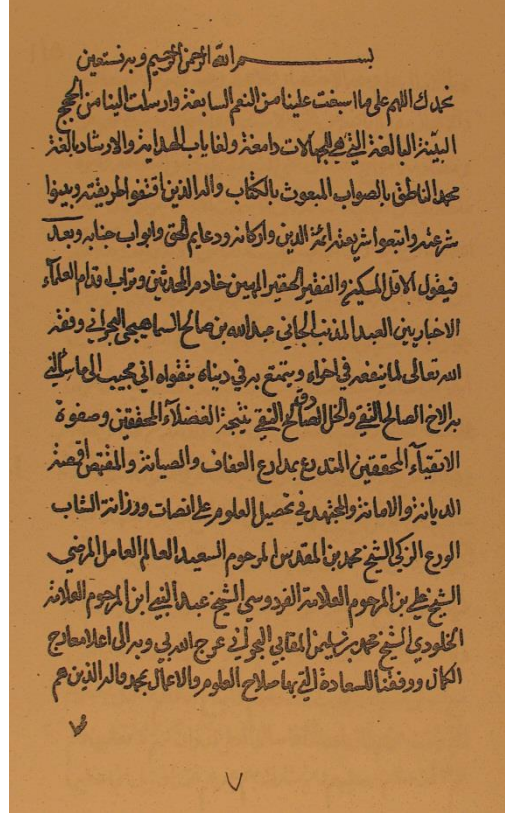 بسم الله الرحمن الرحيم وبه نستعين
نحمدك اللهم على ما اسبغت علينا من النعم السابغة وارسلت الينا من الحجج
البينة البالغة التي هي للجهالات دامغة ولغايات الهداية والارشاد بالغة
محمد الناطق بالصواب المبعوث بالكتاب واله الذين اقتفوا طريقته وبينوا
شرعته واتبعوا شريعته ائمة الدين واركانه ودعايم الحق وابواب جنابه وبعد
فيقول الاقل المسكين والفقير الحقير المهين خادم المحدثين وتراب اقدام العلماء
الاخباريين العبد المذنب الجاني عبد الله بن صالح السماهيجي البحراني وفقه
الله تعالى لما ينفعه في اخراه ويتمتع به في دنياه بتقواه اني مجيب الى ما سألني
به الاخ الصالح التقي والخل الصالح النقي نتيجة الفضلاء المحققين وصفوة
الاتقياء المحققين المتدرع بمدارع العفاف والصيانة والمتقمص اقمصة
الديانة والامانة والمجتهد في تحصيل العلوم على انصات ورزانة الشاب
الورع الزكي الشيخ محمد بن المقدس المرحوم السعيد العالم العامل المرضي
الشيخ علي بن المرحوم العلامة الفردوسي الشيخ عبد النبي ابن المرحوم العلامة
الخلودي الشيخ محمد بن سليمن المقابي البحراني عرج الله بي وبه الى اعلا معارج
الكمال ووفقنا للسعادة التي بها صلاح العلوم والاعمال بمحمد واله الذين هم
٧